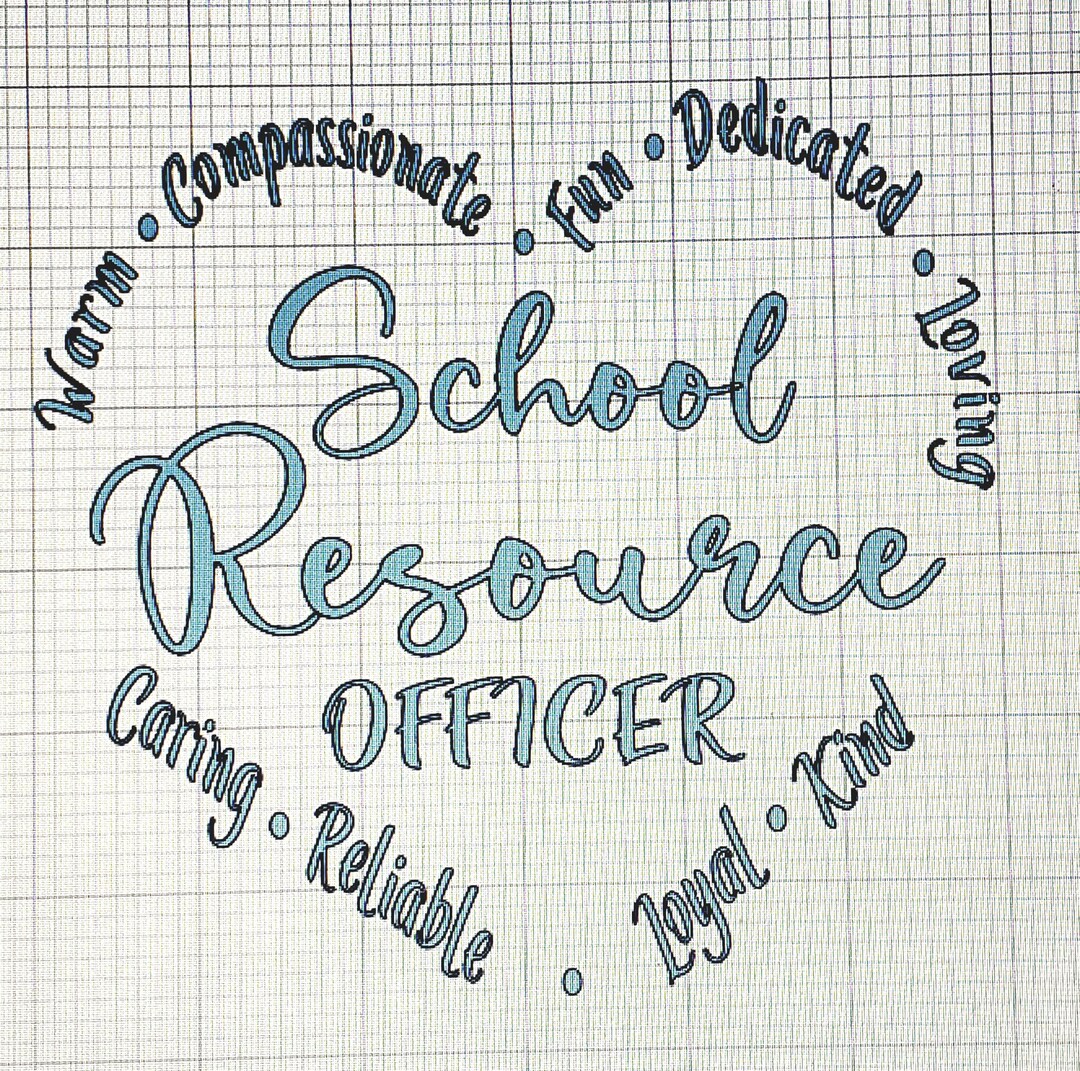 Warm • Compassionate • Fun • Dedicated • Loving
School
Resource
OFFICER
Caring • Reliable • Loyal • Kind